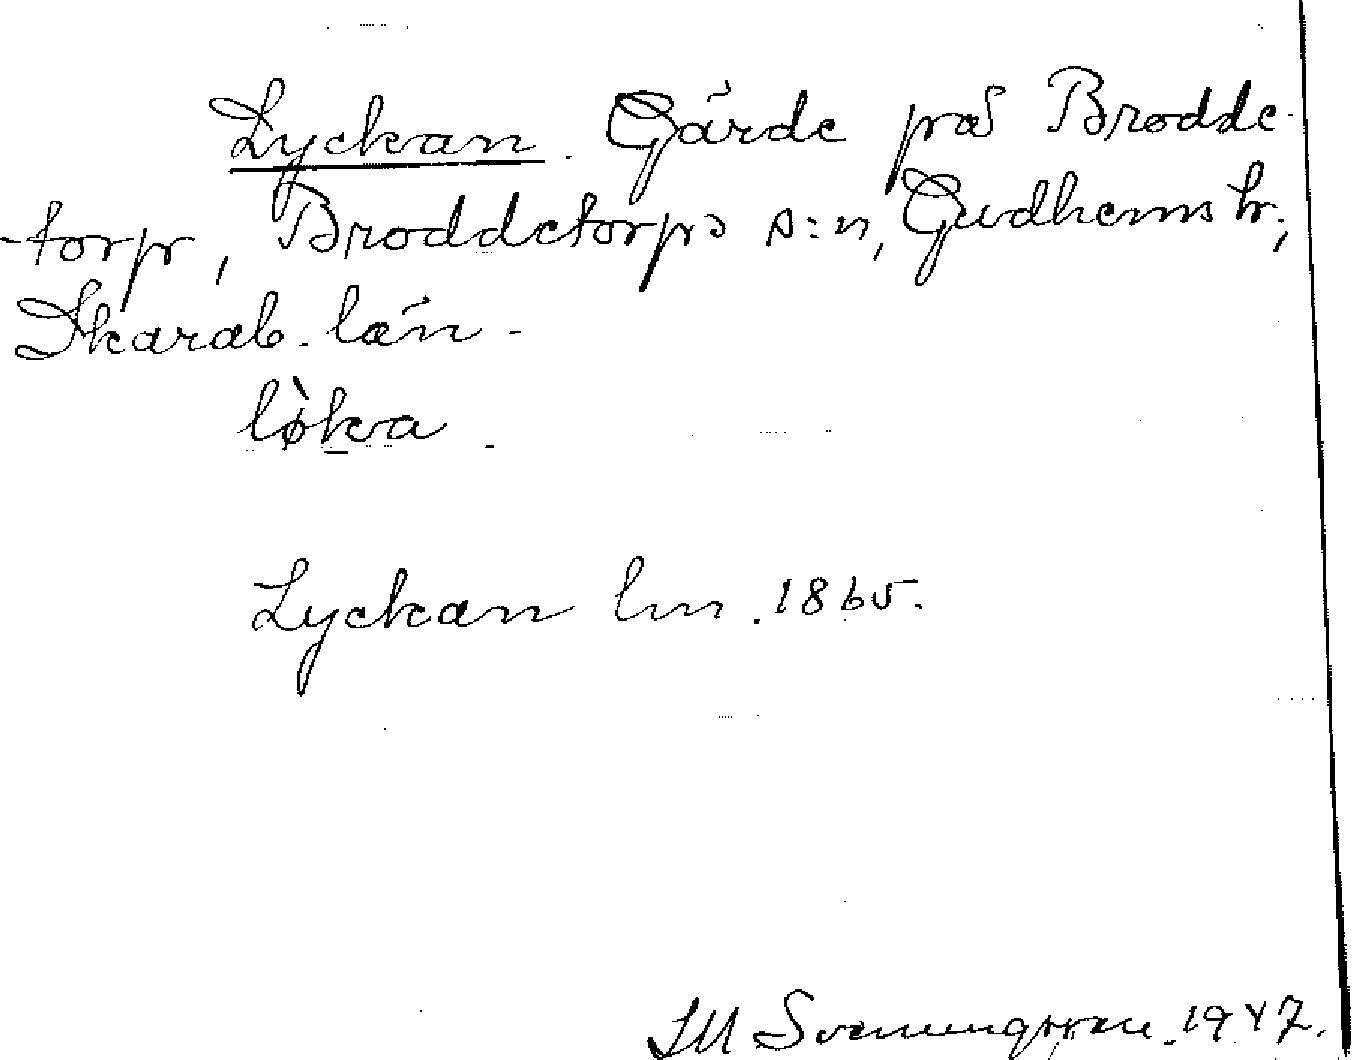 Lyckan. Gärde på Brodde-
-torp, Broddetorps s:n, Gudhems hr,
Skarab. län.
lø̀ka.
Lyckan lm. 1865.
SM Svenungsson 1947.